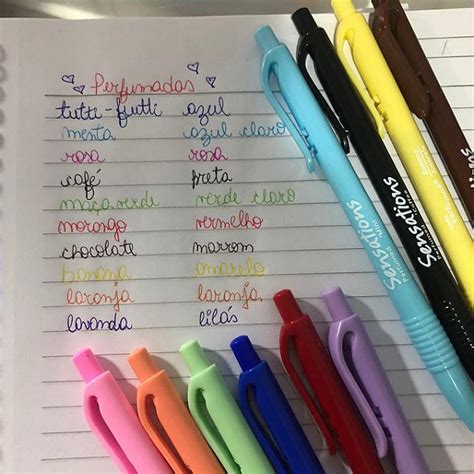 Perfumadas
tutti-frutti azul
menta azul claro
rosa rosa
café preta
maçã verde verde claro
morango vermelho
chocolate marrom
banana amarelo
laranja laranja
lavanda lilás
Sensations
Perfumed Mint
Sensations
Perfumed
Sensations